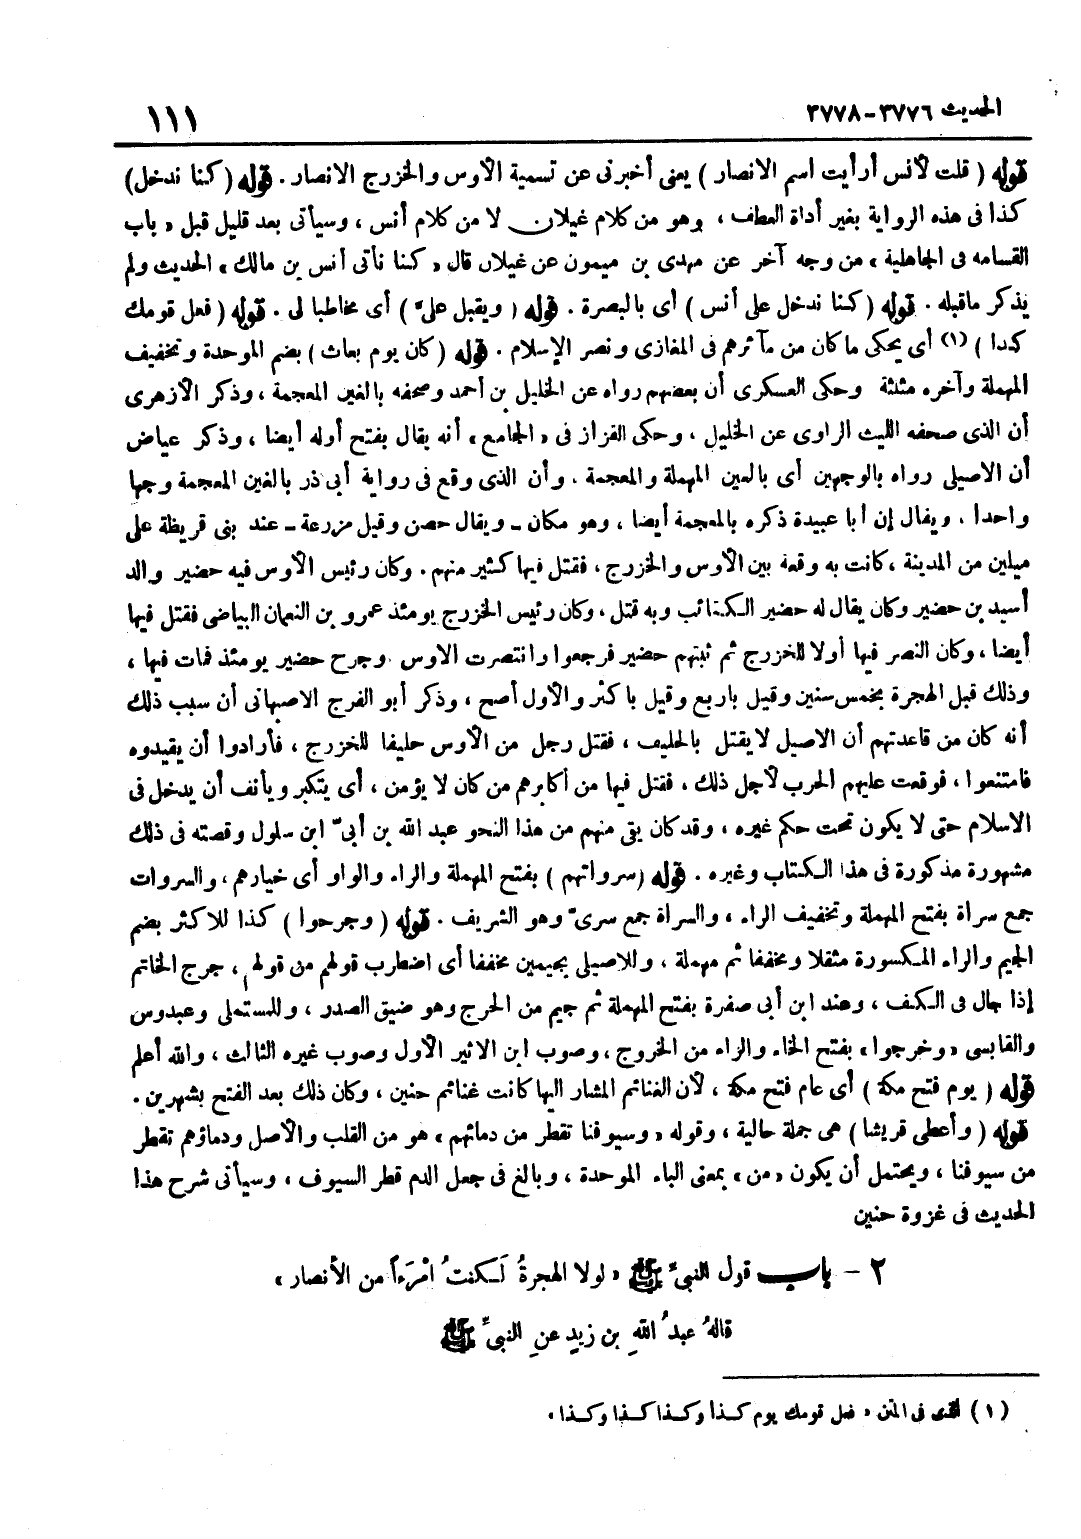 الحديث ٣٧٧٦-٣٧٧٨ ١١١
قوله ( قلت لأنس أرأيت اسم الانصار ) يعنى أخبرنى عن تسمية الأوس والخزرج الانصار . قوله ( كنا ندخل )
كذا فى هذه الرواية بغير أداة العطف ، وهو من كلام غيلان لا من كلام أنس ، وسيأتى بعد قليل قبل « باب
القسامه فى الجاهلية » من وجه آخر عن مهدى بن ميمون عن غيلان قال « كنا نأتى أنس بن مالك » الحديث ولم
يذكر ماقبله . قوله ( كنا ندخل على أنس ) أى بالبصرة . قوله ( ويقبل علىّ ) أى مخاطبا لى . قوله ( فعل قومك
كذا ) (١) أى يحكى ما كان من مآثرهم فى المغازى ونصر الإسلام . قوله ( كان يوم بعاث ) بضم الموحدة وتخفيف
المهملة وآخره مثلثة وحكى العسكرى أن بعضهم رواه عن الخليل بن أحمد وصحفه بالغين المعجمة ، وذكر الأزهرى
أن الذى صحفه الليث الراوى عن الخليل ، وحكى القزاز فى « الجامع » أنه يقال بفتح أوله أيضا ، وذكر عياض
أن الاصيلى رواه بالوجهين أى بالعين المهملة والمعجمة ، وأن الذى وقع فى رواية أبى ذر بالغين المعجمة وجها
واحدا ، ويقال إن أبا عبيدة ذكره بالمعجمة أيضا ، وهو مكان - ويقال حصن وقيل مزرعة - عند بنى قريظة على
ميلين من المدينة ، كانت به وقعة بين الأوس والخزرج ، فقتل فيها كثير منهم . وكان رئيس الأوس فيه حضير والد
أسيد بن حضير وكان يقال له حضير الكتائب وبه قتل ، وكان رئيس الخزرج يومئذ عمرو بن النعمان البياضى فقتل فيها
أيضا ، وكان النصر فيها أولا للخزرج ثم ثبتهم حضير فرجعوا وانتصرت الاوس وجرح حضير يومئذ فمات فيها ،
وذلك قبل الهجرة بخمس سنين وقيل باربع وقيل باكثر والأول أصح ، وذكر أبو الفرج الاصبهانى أن سبب ذلك
أنه كان من قاعدتهم أن الاصيل لا يقتل بالحليف ، فقتل رجل من الأوس حليفا للخزرج ، فأرادوا أن يقيدوه
فامتنعوا ، فوقعت عليهم الحرب لأجل ذلك ، فقتل فيها من أكابرهم من كان لا يؤمن ، أى يتكبر ويأنف أن يدخل فى
الاسلام حتى لا يكون تحت حكم غيره ، وقد كان بقى منهم من هذا النحو عبد الله بن أبىّ ابن سلول وقصته فى ذلك
مشهورة مذكورة فى هذا الكتاب وغيره . قوله ( سرواتهم ) بفتح المهملة والراء والواو أى خيارهم ، والسروات
جمع سراة بفتح المهملة وتخفيف الراء ، والسراة جمع سرىّ وهو الشريف . قوله ( وجرحوا ) كذا للاكثر بضم
الجيم والراء المكسورة مثقلا ومخففا ثم مهملة ، وللاصيلى بجيمين مخففا أى اضطرب قولهم من قولهم ، جرج الخاتم
إذا جال فى الكف ، وعند ابن أبى صفرة بفتح المهملة ثم جيم من الحرج وهو ضيق الصدر ، وللمستملى وعبدوس
والقابسى « وخرجوا » بفتح الخاء والراء من الخروج ، وصوب ابن الاثير الأول وصوب غيره الثالث ، والله أعلم
قوله ( يوم فتح مكة ) أى عام فتح مكة ، لأن الغنائم المشار اليها كانت غنائم حنين ، وكان ذلك بعد الفتح بشهرين .
قوله ( وأعطى قريشا ) هى جملة حالية ، وقوله « وسيوفنا تقطر من دمائهم » هو من القلب والأصل ودماؤهم تقطر
من سيوفنا ، ويحتمل أن يكون « من » بمعنى الباء الموحدة ، وبالغ فى جعل الدم قطر السيوف ، وسيأتى شرح هذا
الحديث فى غزوة حنين
٢ - باب قول النبىّ ﷺ « لولا الهجرةُ لَكنتُ امْرَءاً من الأنصار »
قالهُ عبدُ اللهِ بن زيدٍ عنِ النبىِّ ﷺ
(١) الذى فى المتن « فعل قومك يوم كذا وكذا كذا وكذا »